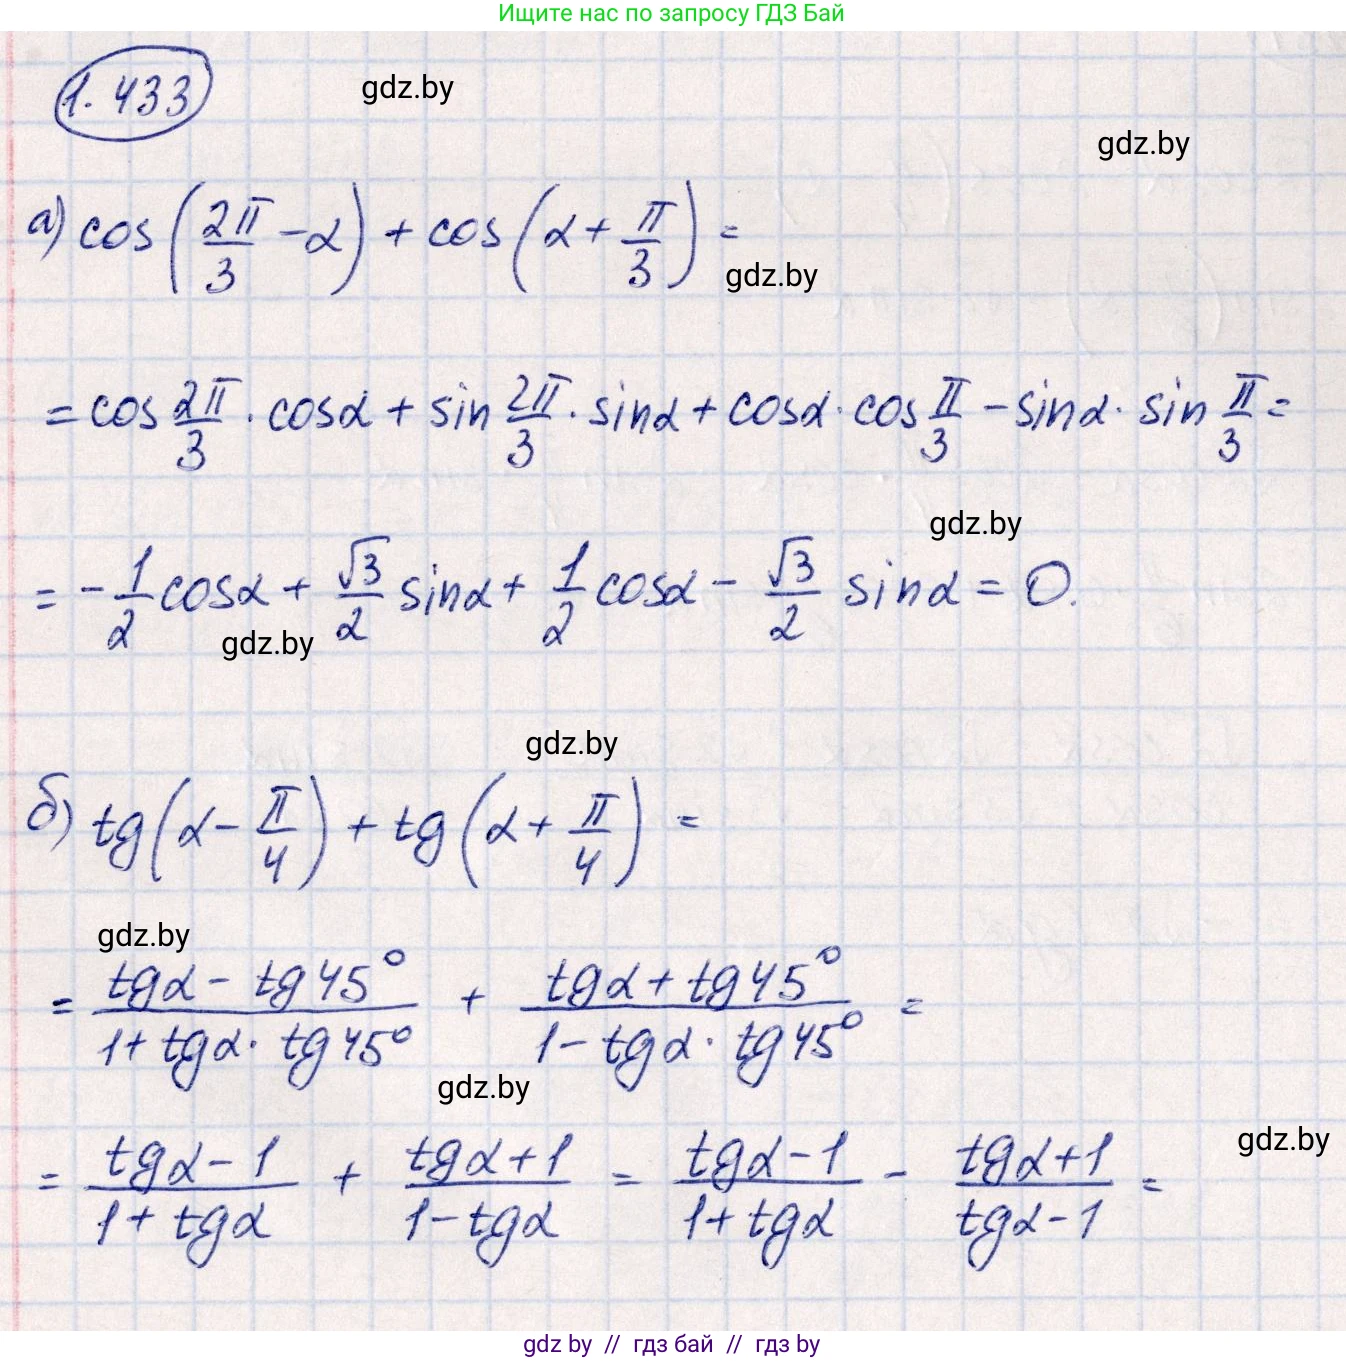 Ищите нас по запросу ГДЗ Бай
1.433
gdz.by
gdz.by
а) cos(2π/3 - α) + cos(α + π/3) =
gdz.by
= cos 2π/3 · cosα + sin 2π/3 · sinα + cosα · cos π/3 - sinα · sin π/3 =
gdz.by
= -1/2 cosα + √3/2 sinα + 1/2 cosα - √3/2 sinα = 0.
gdz.by
gdz.by
б) tg(α - π/4) + tg(α + π/4) =
gdz.by
= (tgα - tg45°)/(1 + tgα · tg45°) + (tgα + tg45°)/(1 - tgα · tg45°) =
gdz.by
gdz.by
= (tgα - 1)/(1 + tgα) + (tgα + 1)/(1 - tgα) = (tgα - 1)/(1 + tgα) - (tgα + 1)/(tgα - 1) =
gdz by // гдз бай // гдз by